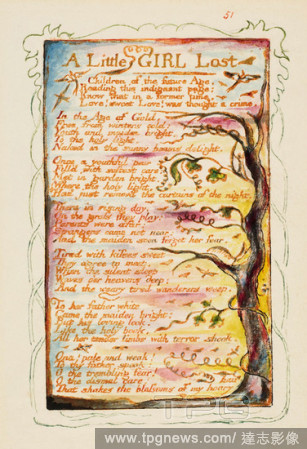 51
A Little GIRL Lost
Children of the future Age,
Reading this indignant page:
Know that in a former time,
Love! sweet Love! was thought a crime.
In the Age of Gold,
Free from winters cold:
Youth and maiden bright,
To the holy light,
Naked in the sunny beams delight.
Once a youthful pair
Fill'd with softest care:
Met in garden bright,
Where the holy light,
Had just remov'd the curtains of the night.
There in rising day,
On the grass they play:
Parents were afar:
Strangers came not near:
And the maiden soon forgot her fear.
Tired with kisses sweet
They agree to meet,
When the silent sleep
Waves o'er heavens deep:
And the weary tired wanderers weep.
To her father white
Came the maiden bright:
But his loving look,
Like the holy book,
All her tender limbs with terror shook.
Ona! pale and weak!
To thy father speak:
O the trembling fear!
O the dismal care!
That shakes the blossoms of my hoary hair
www.tpgnews.com/ 達志影像